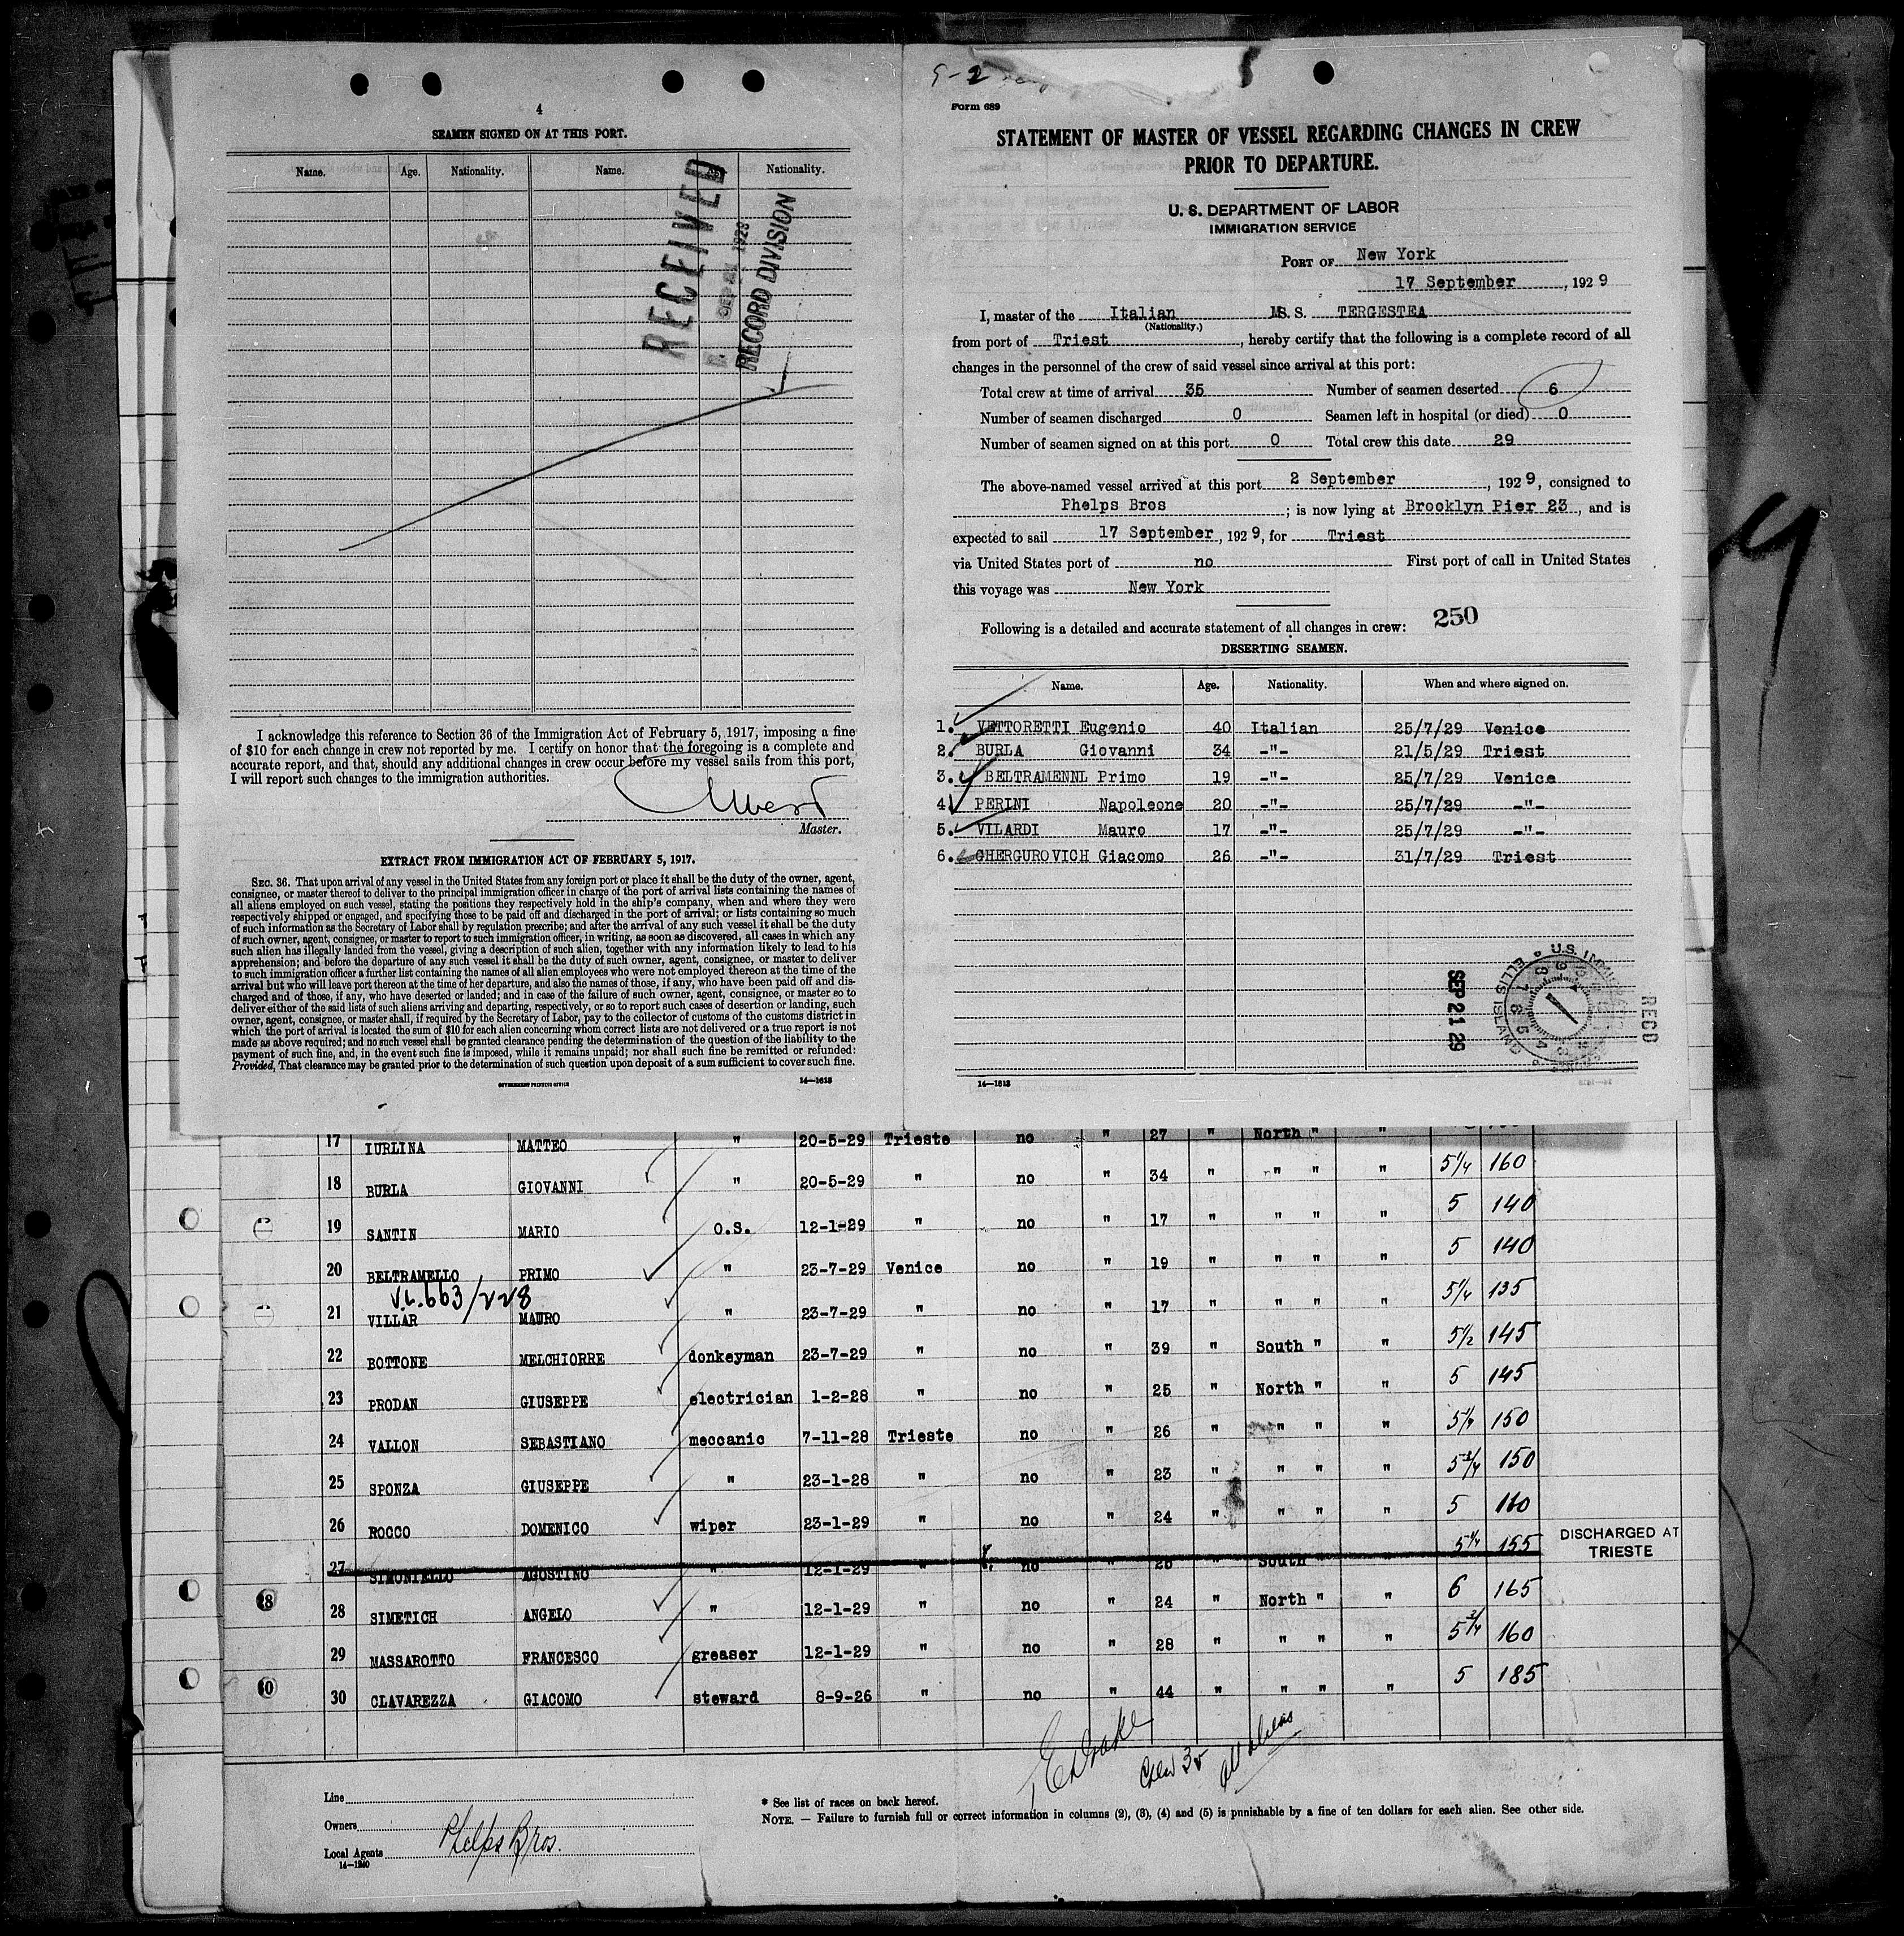 4
SEAMEN SIGNED ON AT THIS PORT.
Name. Age. Nationality. Name. Nationality.
RECEIVED
RECORD DIVISION
I acknowledge this reference to Section 36 of the Immigration Act of February 5, 1917, imposing a fine
of $10 for each change in crew not reported by me. I certify on honor that the foregoing is a complete and
accurate report, and that, should any additional changes in crew occur before my vessel sails from this port,
I will report such changes to the immigration authorities.
Master.
EXTRACT FROM IMMIGRATION ACT OF FEBRUARY 5, 1917.
SEC. 36. That upon arrival of any vessel in the United States from any foreign port or place it shall be the duty of the owner, agent,
consignee, or master thereof to deliver to the principal immigration officer in charge of the port of arrival lists containing the names of
all aliens employed on such vessel, stating the positions they respectively hold in the ship's company, when and where they were
respectively shipped or engaged, and specifying those to be paid off and discharged in the port of arrival; or lists containing so much
of such information as the Secretary of Labor shall by regulation prescribe; and after the arrival of any such vessel it shall be the duty
of such owner, agent, consignee, or master to report to such immigration officer, in writing, as soon as discovered, all cases in which any
such alien has illegally landed from the vessel, giving a description of such alien, together with any information likely to lead to his
apprehension; and before the departure of any such vessel it shall be the duty of such owner, agent, consignee, or master to deliver
to such immigration officer a further list containing the names of all alien employees who were not employed thereon at the time of the
arrival but who will leave port thereon at the time of her departure, and also the names of those, if any, who have been paid off and dis-
charged and of those, if any, who have deserted or landed; and in case of the failure of such owner, agent, consignee, or master so to
deliver either of the said lists of such aliens arriving and departing, respectively, or so to report such cases of desertion or landing, such
owner, agent, consignee, or master shall, if required by the Secretary of Labor, pay to the collector of customs of the customs district in
which the port of arrival is located the sum of $10 for each alien concerning whom correct lists are not delivered or a true report is not
made as above required; and no such vessel shall be granted clearance pending the determination of the question of the liability to the
payment of such fine, and, in the event such fine is imposed, while it remains unpaid; nor shall such fine be remitted or refunded:
Provided, That clearance may be granted prior to the determination of such question upon deposit of a sum sufficient to cover such fine.
GOVERNMENT PRINTING OFFICE 14—1618
9-2
Form 689
STATEMENT OF MASTER OF VESSEL REGARDING CHANGES IN CREW
PRIOR TO DEPARTURE.
U. S. DEPARTMENT OF LABOR
IMMIGRATION SERVICE
PORT OF New York
17 September, 1929
I, master of the Italian MS. S. TERGESTEA
(Nationality.)
from port of Triest, hereby certify that the following is a complete record of all
changes in the personnel of the crew of said vessel since arrival at this port:
Total crew at time of arrival 35 Number of seamen deserted 6
Number of seamen discharged 0 Seamen left in hospital (or died) 0
Number of seamen signed on at this port 0 Total crew this date 29
The above-named vessel arrived at this port 2 September, 1929, consigned to
Phelps Bros; is now lying at Brooklyn Pier 23, and is
expected to sail 17 September, 1929, for Triest
via United States port of no First port of call in United States
this voyage was New York
250
Following is a detailed and accurate statement of all changes in crew:
DESERTING SEAMEN.
Name. Age. Nationality. When and where signed on.
1. VETTORETTI Eugenio 40 Italian 25/7/29 Venice
2. BURLA Giovanni 34 -"- 21/5/29 Triest
3. BELTRAMENNL Primo 19 -"- 25/7/29 Venice
4. PERINI Napoleone 20 -"- 25/7/29 -"-
5. VILARDI Mauro 17 -"- 25/7/29 -"-
6. GHERGUROVICH Giacomo 26 -"- 31/7/29 Triest
SEP 21 29
U.S. IMMI
ELLIS ISLAND
RECD
14—1618
17 IURLINA MATTEO " 20-5-29 Trieste no " 27 " North " "
18 BURLA GIOVANNI " 20-5-29 " no " 34 " " " " 5 1/4 160
19 SANTIN MARIO O.S. 12-1-29 " no " 17 " " " " 5 140
20 BELTRAMELLO PRIMO " 23-7-29 Venice no " 19 " " " " 5 140
V.L.663/228
21 VILLAR MAURO " 23-7-29 " no " 17 " " " " 5 1/4 135
22 BOTTONE MELCHIORRE donkeyman 23-7-29 " no " 39 " South " " 5 1/2 145
23 PRODAN GIUSEPPE electrician 1-2-28 " no " 25 " North " " 5 145
24 VALLON SEBASTIANO meccanic 7-11-28 Trieste no " 26 " " " " 150
25 SPONZA GIUSEPPE " 23-1-28 " no " 23 " " " " 5 3/4 150
26 ROCCO DOMENICO wiper 23-1-29 " no " 24 " " " " 5 160
27 SIMONIELLO AGOSTINO " 12-1-29 " no " 25 " South " " 5 1/4 155 DISCHARGED AT TRIESTE
28 SIMETICH ANGELO " 12-1-29 " no " 24 " North " " 6 165
29 MASSAROTTO FRANCESCO greaser 12-1-29 " no " 28 " " " " 5 3/4 160
30 CLAVAREZZA GIACOMO steward 8-9-26 " no " 44 " " " " 5 185
Crew 35 all aliens
Line
Owners
Local Agents Phelps Bros.
14—1240
* See list of races on back hereof.
NOTE. — Failure to furnish full or correct information in columns (2), (3), (4) and (5) is punishable by a fine of ten dollars for each alien. See other side.